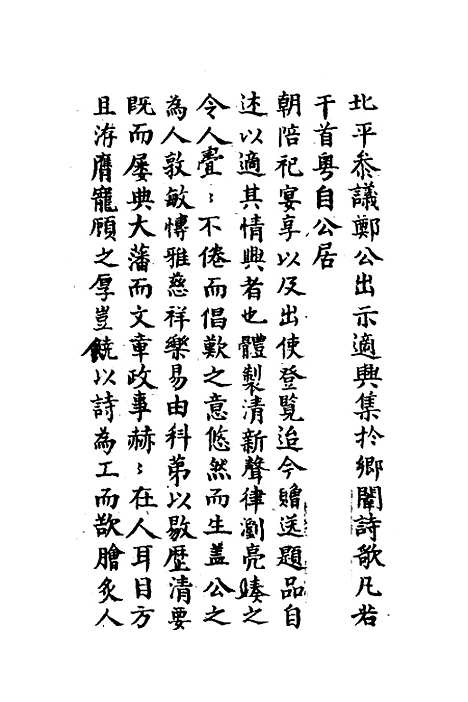 北平叅議鄭公出示適興集扵鄉闈詩歌凡若
干首粤自公居
朝陪祀宴享以及出使登覧迨今贈送題品自
述以適其情興者也體製清新聲律瀏亮味之
令人亹〻不倦而倡歎之意悠然而生盖公之
為人敦敏慱雅慈祥樂易由科苐以敭歴清要
既而屡典大藩而文章政事赫〻在人耳目方
且洊膺寵顧之厚豈徒以詩為工而欲膾炙人